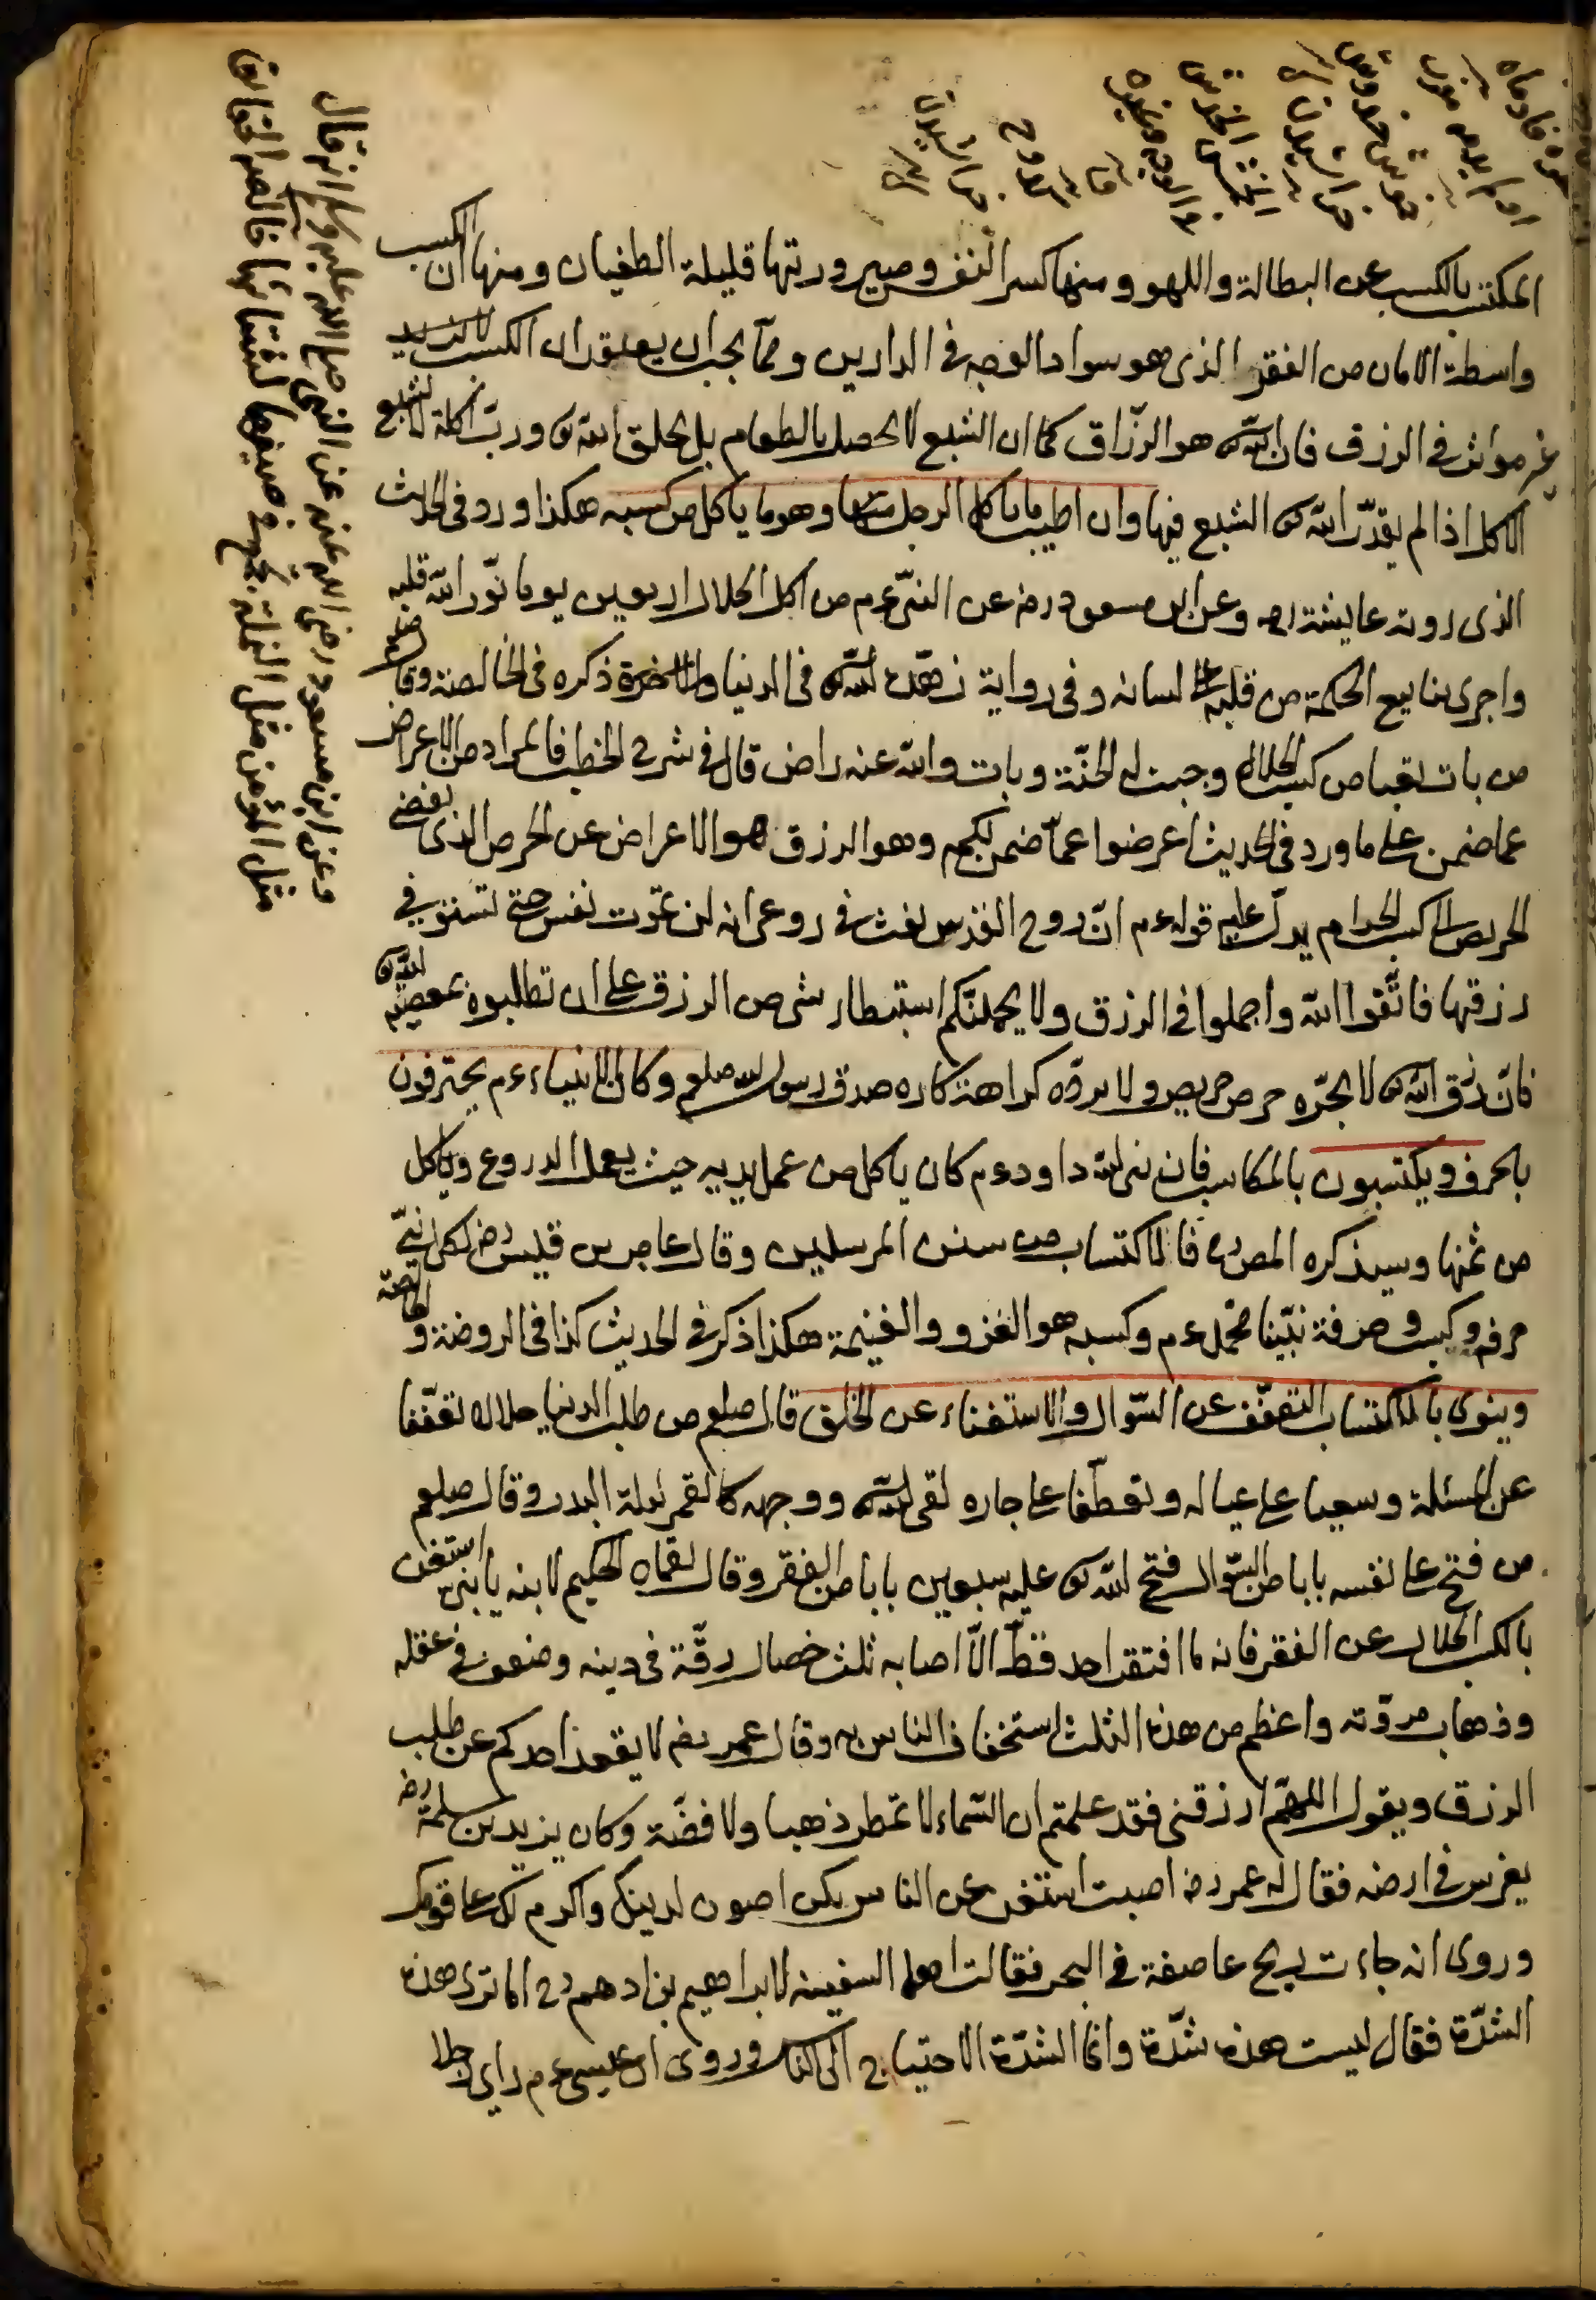 المكتسب بالكسب عن البطالة واللهو ومنها كسر النفس وصيرورتها قليلة الطغيان ومنها ان الكسب
واسطة الامان من الفقر الذى هو سواد الوجه فى الدارين ومما يجب ان يعتقد ان الكسب
غير مؤثر فى الرزق فان الله تع هو الرزّاق كما ان الشبع لا يحصل بالطعام بل بخلق الله تع وربّ اكلة لا تشبع
الاكل اذا لم يقدّر الله تع الشبع فيها وان اطيب ما ياكل الرجل وهو ما ياكل من كسبه هكذا ورد فى الحديث
الذى روته عايشة رض وعن ابن مسعود رض عن النبىّ عم من اكل الحلال اربعين يوما نوّر الله قلبه
واجرى ينابيع الحكمة من قلبه على لسانه وفى رواية زهّده الله تع فى الدنيا والاخرة ذكره فى الخالصة وقال صلعم
من بات تعبا من كسب الحلال وجبت له الجنّة وبات والله عنه راض قال فى شرح الخطب فالمراد من الاعراض
عما ضمن على ما ورد فى الحديث اعرضوا عمّا ضمن لكم وهو الرزق هو الاعراض عن الحرص الذى يفضى
الحريص الى كسب الحرام يدلّ عليه قوله عم انّ روح القدس نفث فى روعى انه لن تموت نفس حتى تستوفى
رزقها فاتّقوا الله واجملوا فى الرزق ولا يحملنّكم استبطاء شى من الرزق على ان تطلبوه بمعصية الله تع
فانّ رزق الله تع لا يجرّه حرص حريص ولا يردّه كراهة كاره صدق رسول الله صلعم وكان الانبياء عم يحترفون
بالحرف ويكتسبون بالمكاسب فان نبى الله داود عم كان ياكل من عمل يديه حيث يعمل الدروع وياكل
من ثمنها وسيذكره المص ره فالاكتساب من سنن المرسلين وقال عامر بن قيس رض لكل نبىّ
حرفة وكسب وحرفة نبيّنا محمّد عم وكسبه هو الغزو والغنيمة هكذا ذكر فى الحديث كذا فى الروضة و
وينوى بالاكتساب التعفّف عن السّوال والاستغناء عن الخلق قال صلعم من طلب الدنيا حلالا تعفّفا
عن المسئلة وسعيا على عياله وتعطّفا على جاره لقى الله تع ووجهه كالقمر ليلة البدر وقال صلعم
من فتح على نفسه بابا من السّوال فتح الله تع عليه سبعين بابا من الفقر وقال لقمان الحكيم لابنه يا بنى استغن
بالكسب الحلال عن الفقر فانه ما افتقر احد قطّ الّا اصابه ثلث خصال رقّة فى دينه وضعف فى عقله
وذهاب مروّته واعظم من هذه الثلث استخفاف الناس به وقال عمر رض لا يقعد احدكم عن طلب
الرزق ويقول اللهمّ ارزقنى فقد علمتم ان السّماء لا تمطر ذهبا ولا فضّة وكان يزيد بن سلمة رض
يغرس فى ارضه فقال له عمر رض اصبت استغن عن الناس يكن اصون لدينك واكرم لك على قومك
وروى انه جاءت ريح عاصفة فى البحر فقالت اهل السفينة لابراهيم بن ادهم رح الا ترى هذه
الشدّة فقال ليست هذه شدّة وانما الشدّة الاحتياج الى الناس وروى ان عيسى عم راى رجلا
وعن ابن مسعود رضى الله عنه عن النبى صلى الله عليه وسلم انه قال
مثل المؤمن مثل النحلة